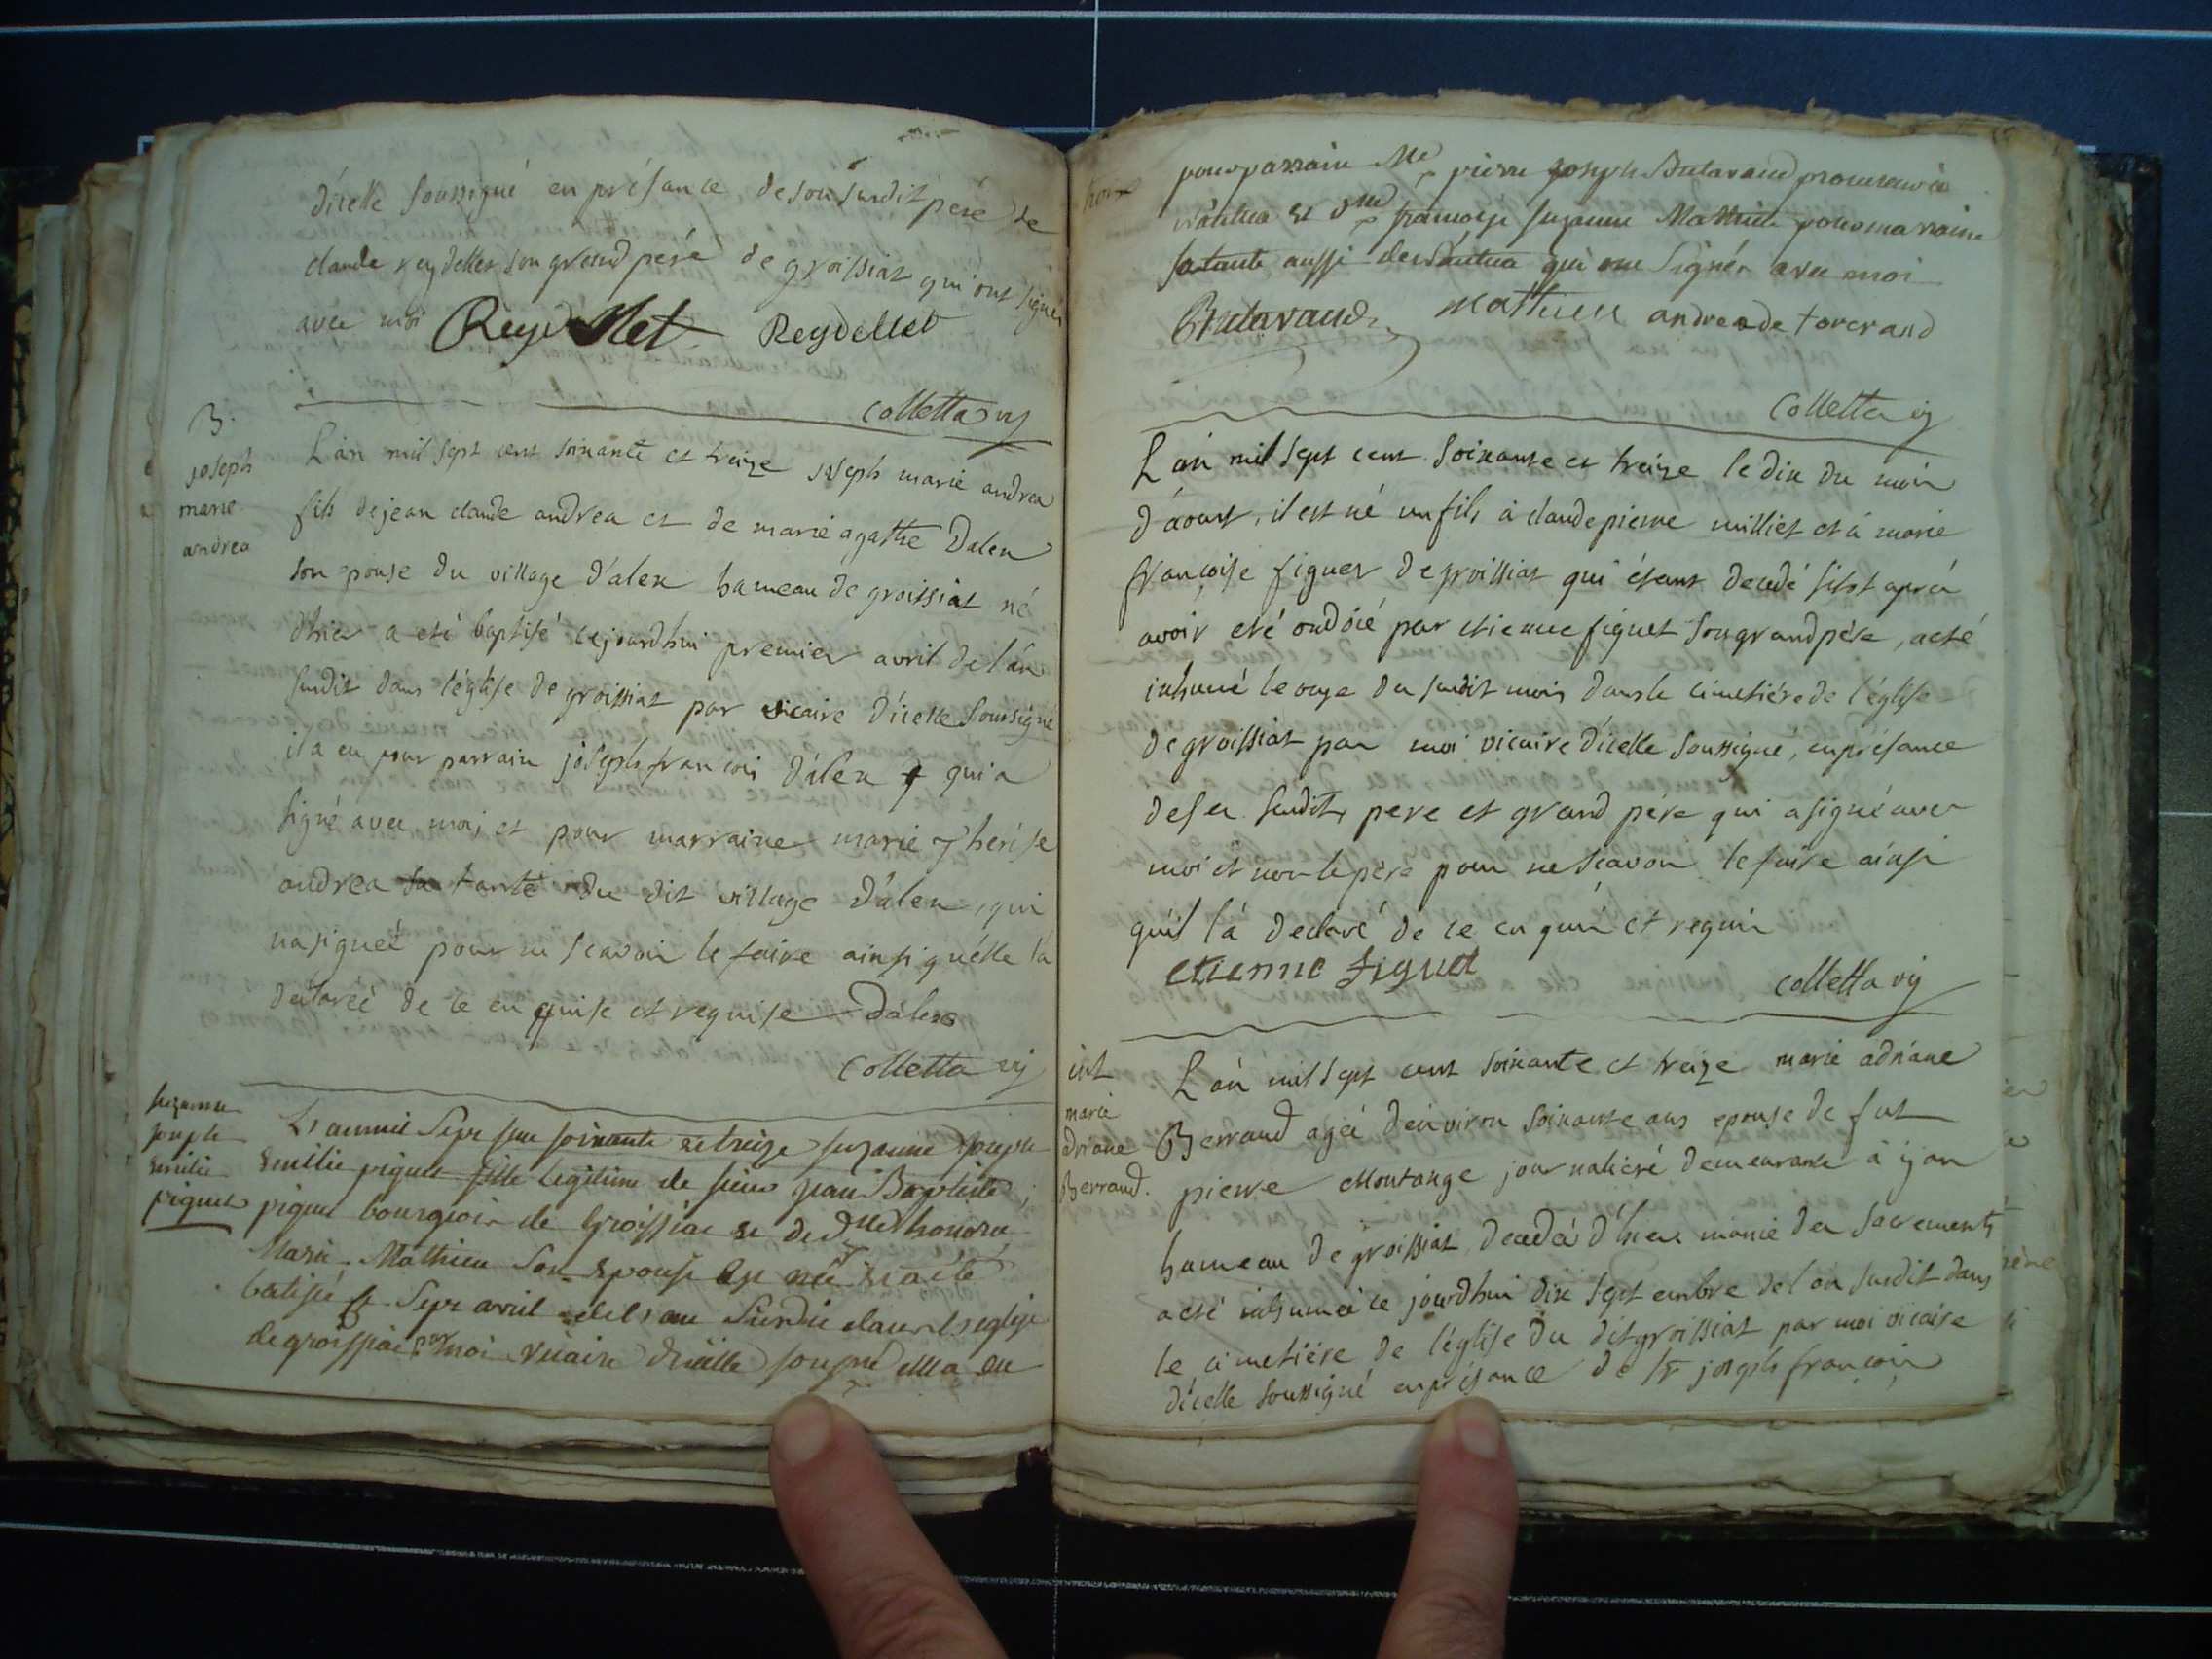 d'icelle soussigné en présance de son susdit pére et
claude reydellet son grand péré de groissiat qui ont signés
avec moi Reydellet Reydellet
colletta vic
B.
joseph
marie
andrea
L'an mil sept cent soixante et treize joseph marie andrea
fils de jean claude andrea et de marie agathe Dalex
son epouse du village d'alex hameau de groissiat né
d'hier a eté baptisé cejourdhui premier avril de l'an
susdit dans l'église de groissiat par vicaire d'icelle soussigné
il a eu pour parrain joseph francois d'alex qui a
signé avec moi, et pour marraine marie Therése
andrea sa tante du dit village d'alex, qui
na signéé pour ne scavoir le faire ainsi quélle la
declaréé de ce en quise et requise Dalex
colletta vic
suzanne
joseph
emilie
piquet
L'an mil sept cent soixante et treize suzanne joseph
Emilie piquet fille legitime de sieur jean Baptiste
piquet bourgeois de Groissiat et de dlle honoré
Marie Mathieu son Epouse est née et a été
batisée le sept avril de l'an susdit dans l'eglise
de groissiat par moi vicaire d'icelle sousigné elle a eu
pour parrain Me pierre joseph Butavand procureur à
nantua et dlle francoise suzanne Mathieu pour marraine
sa tante aussi de Nantua qui ont signés avec moi
Butavand Mathieu andrea de torcrand
Colletta vic
L'an mil sept cent soixante et treize le dix du mois
d'aoust, il est né un fils à claude pierre milliet et à marie
françoise figuet de groissiat qui étant decedé sitot aprés
avoir eté ondoié par etienne figuet son grand pére, a eté
inhumé le onze du susdit mois dans le cimetiére de l'église
de groissiat par moi vicaire d'icelle soussigné, en présance
de ses susdits pere et grand pére qui a signé avec
moi et non le pére pour ne scavoir le faire ainsi
quil l'a declaré de ce en quis et requis
etienne figuet
colletta vic
int
marie
driane
Berraud.
L'an mil sept cent soixante et treize marie adriane
Berraud agéé d'environ soixante ans epouse de fut
pierre Montange journalieré demeurante à ijon
hameau de groissiat decedéé d'hier munie des sacrements
a eté inhuméé ce jourdhui dix septembre de l'an susdit dans
le cimetiére de l'église du dit groissiat par moi vicaire
d'icelle soussigné en présance de Sr joseph françois